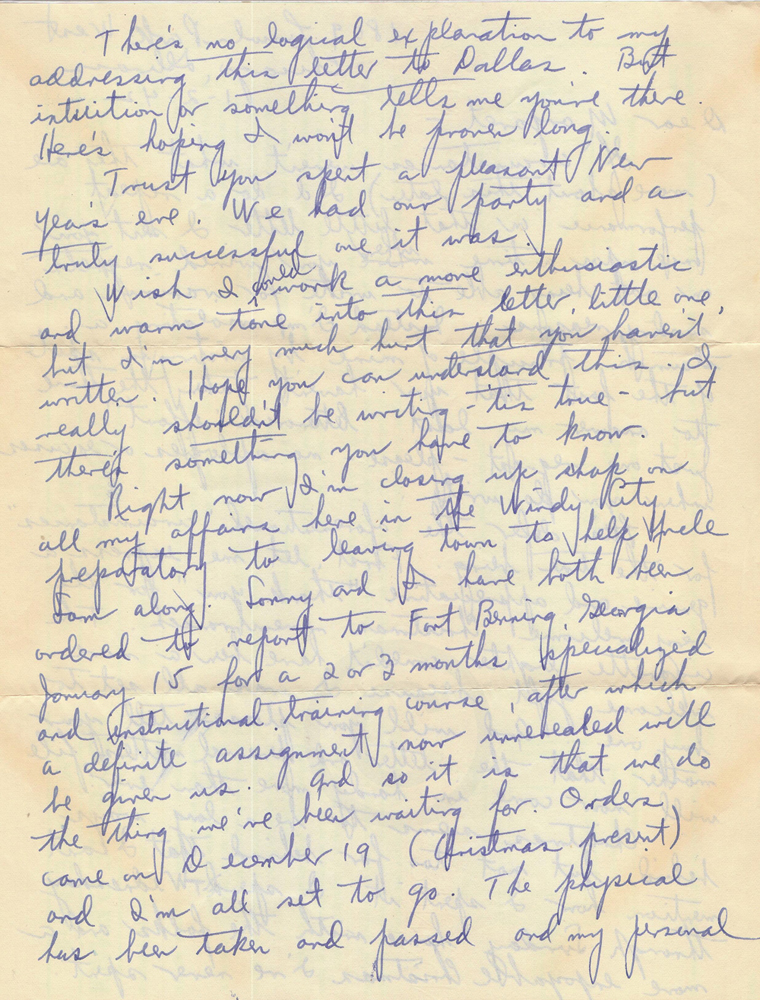 There's no logical explanation to my
addressing this letter to Dallas. But
intuition or something tells me you're there.
Here's hoping I won't be proven long.
Trust you spent a pleasant New
Year's eve. We had our party and a
truly successful one it was.
Wish I could work a more enthusiastic
and warm tone into this letter, little one,
but I'm very much hurt that you haven't
written. I hope you can understand this. I
really shouldn't be writing - 'tis true - but
there's something you have to know.
Right now I'm closing up shop on
all my affairs here in the Windy City
preparatory to leaving town to help Uncle
Sam along. Sonny and I have both been
ordered to report to Fort Benning, Georgia
January 15 for a 2 or 3 months specialized
and instructional training course, after which
a definite assignment now unrevealed will
be given us. And so it is that we do
the thing we've been waiting for. Orders
came on December 19 (Christmas present)
and I'm all set to go. The physical
has been taken and passed and my personal